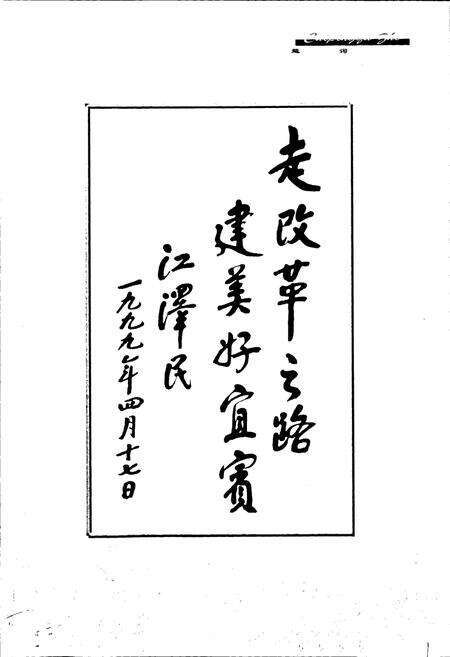 题 词
走改革之路
建美好宜宾
江泽民
一九九九年四月十七日